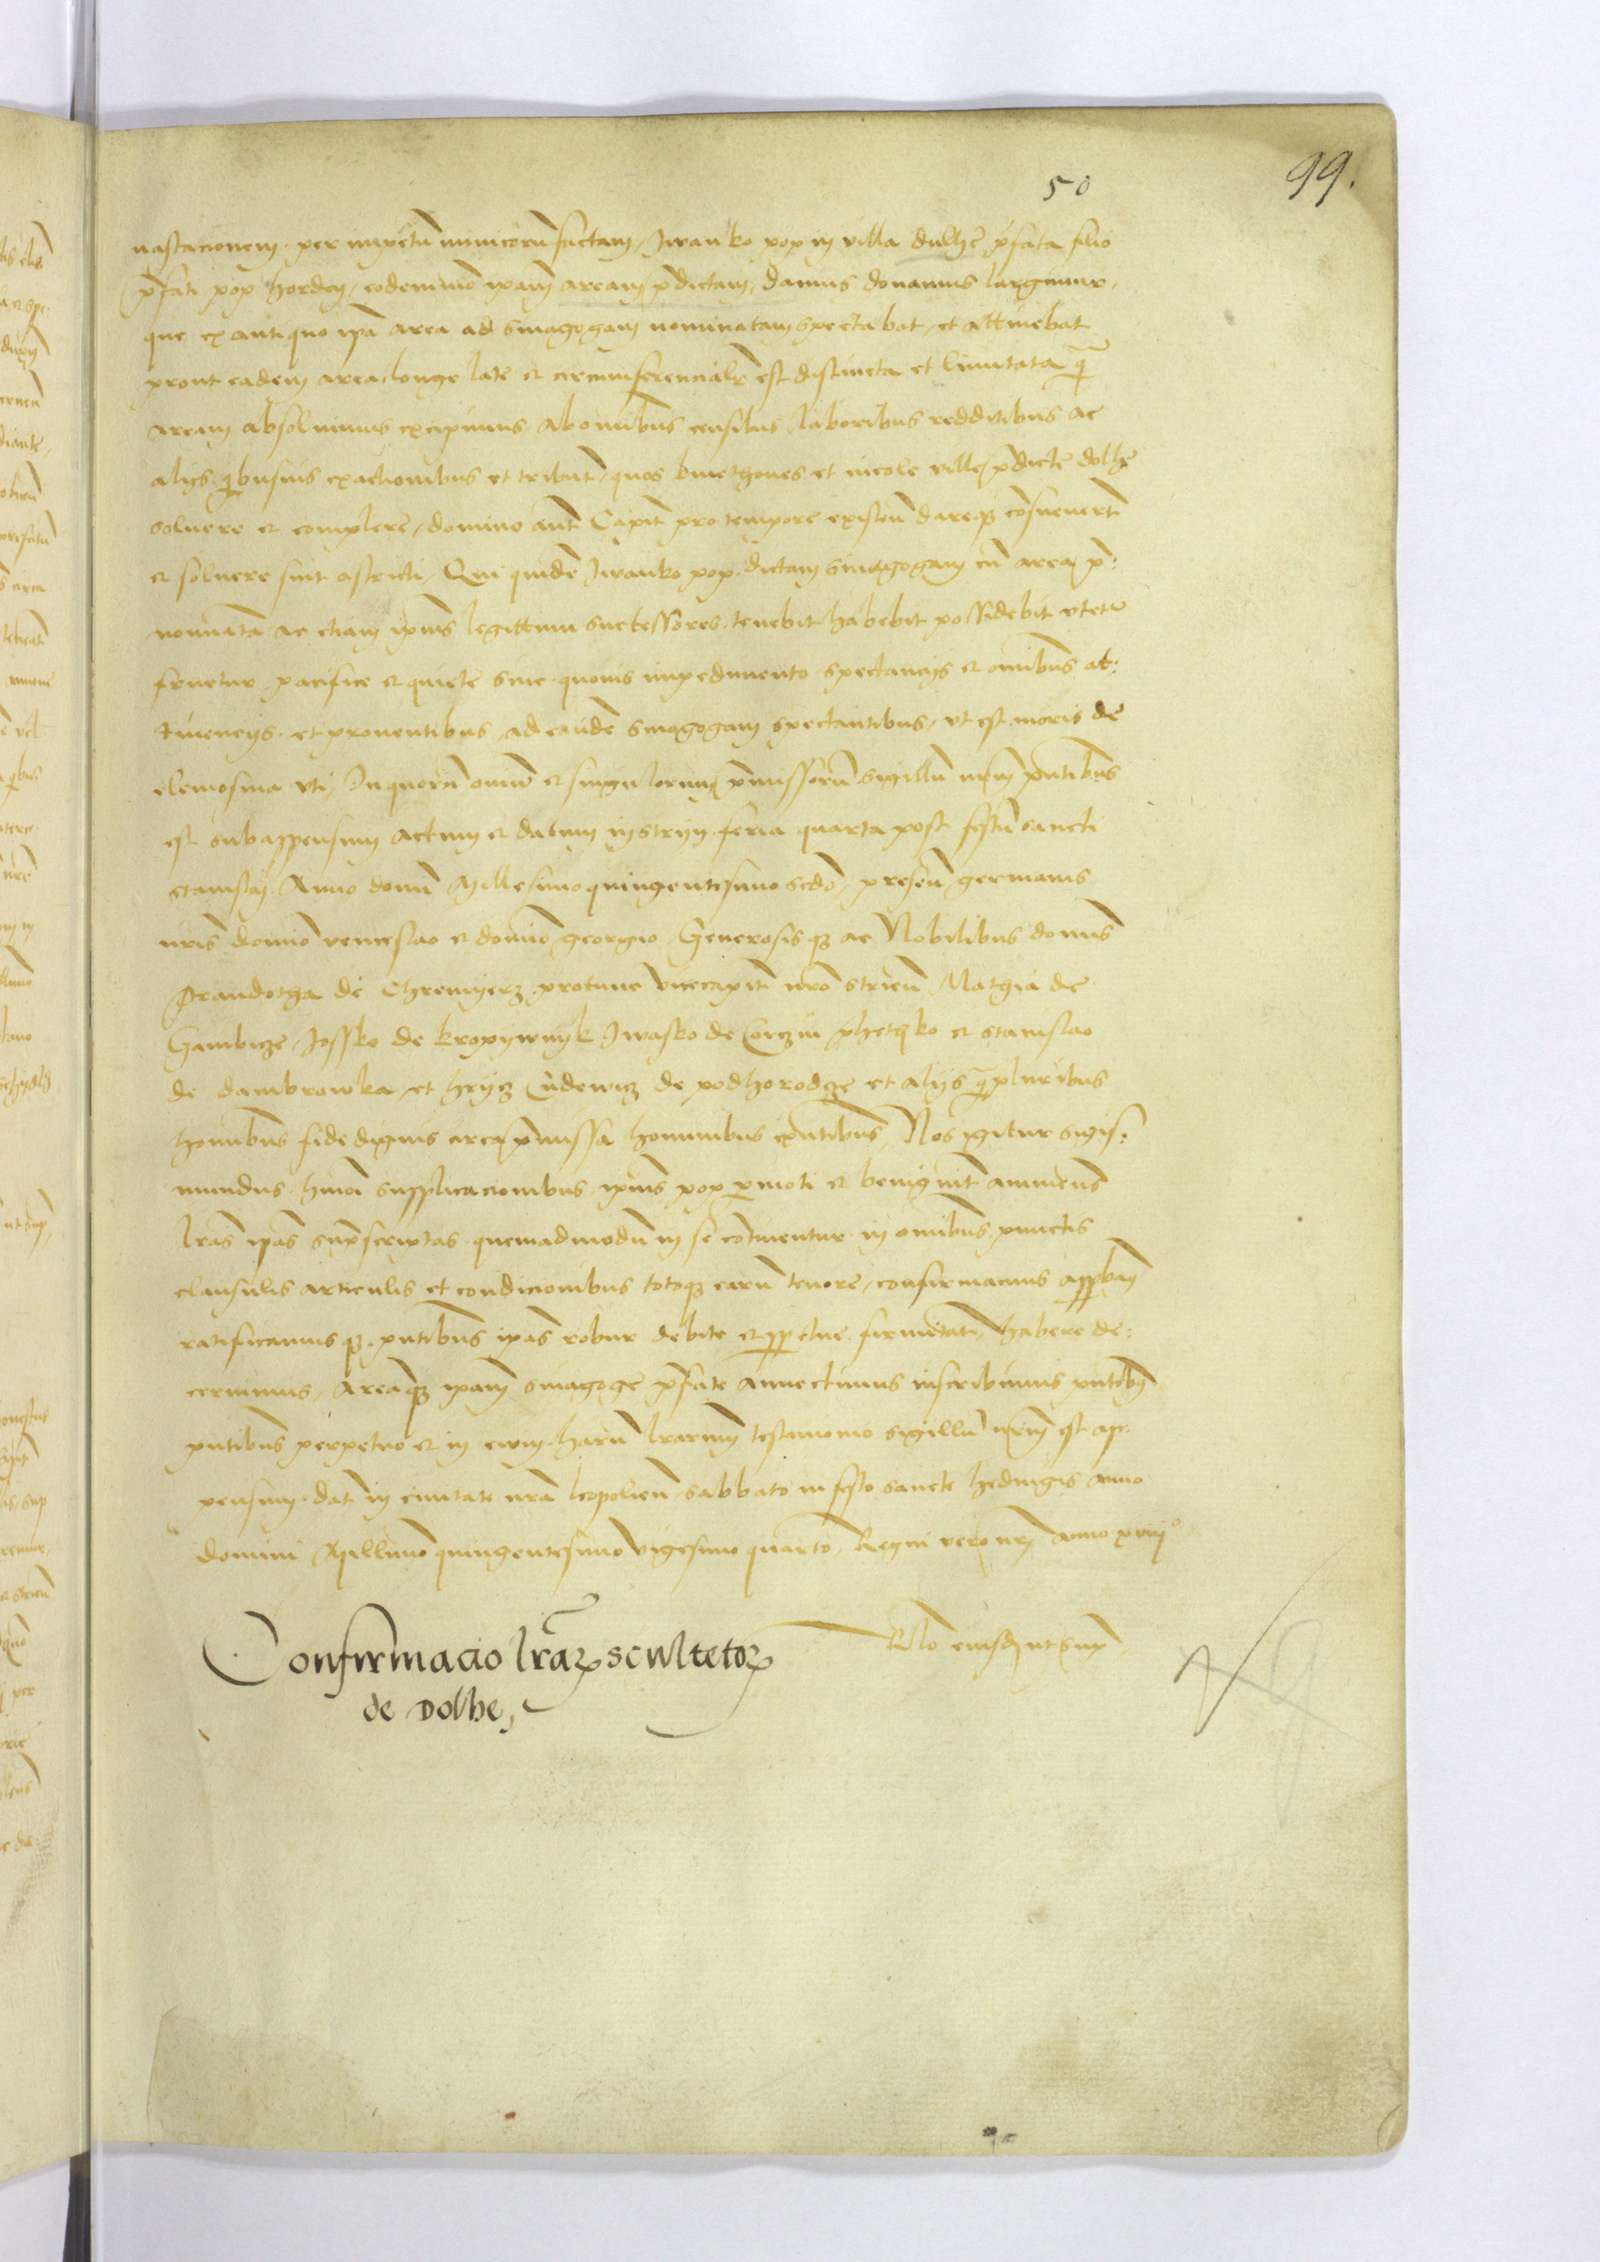 99.
50
uastacionem per impetū inimicorū factam, Jwanko pop in villa dulhe p̄fata filio
p̄fati pop hordeij, eodemmō ipam̄ aream p̄dictam, damus donamus largimur,
que ex antiquo ip̄a area ad sinagogam nominatam spectabat, et attinebat
prout eadem area longe late et circumferencialr̄ est distincta et limitata, q̄
aream absoluimus excipimus ab omībus censibus, laboribus redditibus ac
alijs quibusuis exactionibus et tribut̄, quos kmethones et incole ville p̄dicte dolhe
soluere et complere, domino aut̄ Capit̄ pro tempore existen̄ dareqȝ consueuert̄
et soluere sint astricti, Qui quidē Jwanko pop dictam sinagogam cū area p̄:
nominata ac etiam ipius legittimi successores tenebit habebit possidebit vtetur
fruetur pacifice et quiete sine quouis impedimento spectancijs et omībus at:
tinencijs et prouentibus ad eandē sinagogam spectantibus, vt est moris de
elemosina vti, In quorū omniū et singulorum p̄missorū sigillū nr̄m p̄ntibus
est subappensum actum et datum in strijn feria quarta post festū sancti
stanislai Anno domī Millesimo quingentesimo scdo, presen̄ germanis
nris domino venceslao et domino georgio, Generosis qȝ ac Nobilibus domīs
Prandotha de Chremyerz protunc vicecapit̄ nro strien̄ Mathia de
Gambicze, Jossko de kropywnyk Jwasko de Corczin phethko et stanislao
de dambrowka et hrijcz ludewicz de podhorodcze et alijs q̄pluribus
homībus fide dignis circa p̄missa hominibus exn̄tibus, Nos igitur sigis:
mundus hmōi supplicacionibus ipius pop p̄moti et benignit̄ annuen̄s
lr̄as ip̄as suprascriptas quemadmodū in se continentur in omībus punctis
clausulis articulis et condicionibus totoqȝ earū tenore, confirmamus approbam̄
ratificamusqȝ p̄ntibus ip̄as robur debite et ppetue firmitatis habere de:
cernimus, areāqȝ ipam̄ sinagoge p̄fate annectimus inscribimus p̄ntibus
p̄ntibus perpetuo et in euum harū lr̄arum testimonio sigillū nr̄m est ap:
pensum dat̄ in ciuitate nr̄a leopolien̄ sabbato in festo sancte hedwigis anno
domini Millimo quingentesimo vigesimo quarto, Regni vero nr̄i anno xviijº
Rlo eiusdem ut sup̄
Confirmacio lr̄aꝝ scultetoꝝ
de Dolhe,